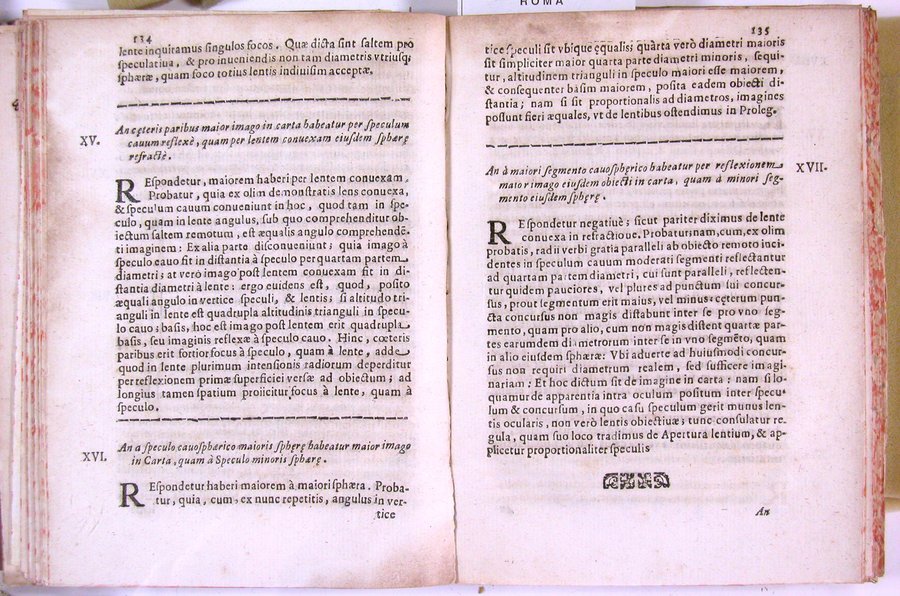 ROMA
134
lente inquiramus singulos focos. Quæ dicta sint saltem pro
speculatiua, & pro inueniendis non tam diametris vtriusq;
sphæræ, quam foco totius lentis indiuisim acceptæ.
XV.
An cęteris paribus maior imago in carta habeatur per speculum
cauum reflexè, quam per lentem conuexam eiusdem sphærę
refractè.
REspondetur, maiorem haberi per lentem conuexam.
Probatur, quia ex olim demonstratis lens conuexa,
& speculum cauum conueniunt in hoc, quod tam in spe-
culo, quam in lente angulus, sub quo comprehenditur ob-
iectum saltem remotum, est æqualis angulo comprehendē-
ti imaginem: Ex alia parte disconueniunt; quia imago à
speculo cauo sit in distantia à speculo per quartam partem
diametri; at verò imago post lentem conuexam sit in di-
stantia diametri à lente: ergo euidens est, quod, posito
æquali angulo in vertice speculi, & lentis; si altitudo tri-
anguli in lente est quadrupla altitudinis trianguli in specu-
lo cauo; basis, hoc est imago post lentem erit quadrupla
basis, seu imaginis reflexæ à speculo cauo. Hinc, cœteris
paribus erit fortior focus à speculo, quam à lente, adde
quod in lente plurimum intensionis radiorum deperditur
per reflexionem primæ superficiei versæ ad obiectum; ad
longius tamen spatium proiicitur focus à lente, quam à
speculo.
XVI.
An a speculo cauosphærico maioris spherę habeatur maior imago
in Carta, quam à Speculo minoris sphærę.
REspondetur haberi maiorem à maiori sphæra. Proba-
tur, quia, cum, ex nunc repetitis, angulus in ver-
tice
135
tice speculi sit vbique ęqualis; quarta verò diametri maioris
sit simpliciter maior quarta parte diametri minoris, sequi-
tur, altitudinem trianguli in speculo maiori esse maiorem,
& consequenter basim maiorem, posita eadem obiecti di-
stantia; nam si sit proportionalis ad diametros, imagines
possunt fieri æquales, vt de lentibus ostendimus in Proleg.
XVII.
An à maiori segmento cauosphęrico habeatur per reflexionem
maior imago eiusdem obiecti in carta, quam à minori seg-
mento eiusdem spherę.
REspondetur negatiuè; sicut pariter diximus de lente
conuexa in refractione. Probatur: nam, cum, ex olim
probatis, radii verbi gratia paralleli ab obiecto remoto inci-
dentes in speculum cauum moderati segmenti reflectantur
ad quartam partem diametri, cui sunt paralleli, reflecten-
tur quidem pauciores, vel plures ad punctum sui concur-
sus, prout segmentum erit maius, vel minus: cęterum pun-
cta concursus non magis distabunt inter se pro vno seg-
mento, quam pro alio, cum non magis distent quartæ par-
tes earumdem diametrorum inter se in vno segmēto, quam
in alio eiusdem sphæræ: Vbi aduerte ad huiusmodi concur-
sus non requiri diametrum realem, sed sufficere imagi-
nariam: Et hoc dictum sit de imagine in carta: nam si lo-
quamur de apparentia intra oculum positum inter specu-
lum & concursum, in quo casu speculum gerit munus len-
tis ocularis, non verò lentis obiectiuæ; tunc consulatur re-
gula, quam suo loco tradimus de Apertura lentium, & ap-
plicetur proportionaliter speculis
An